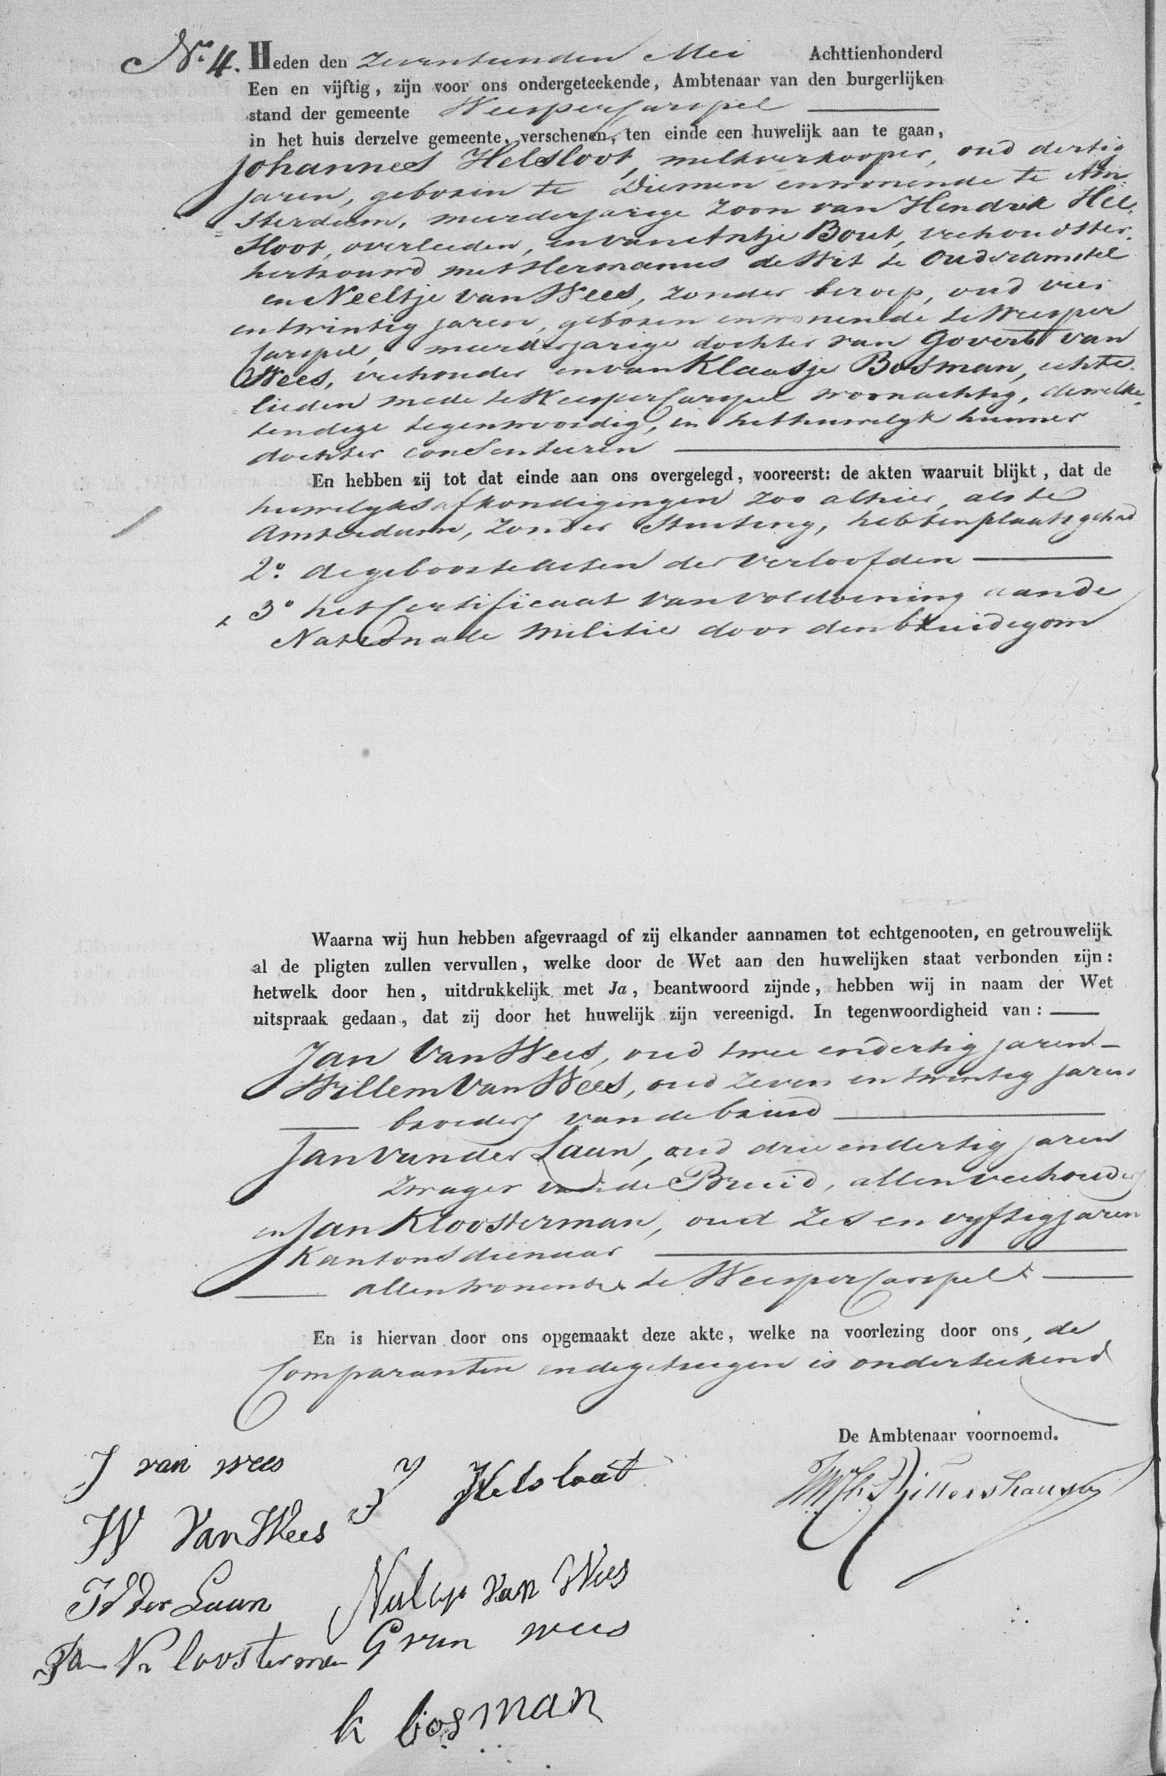 No. 4. Heden den Zeventienden Mei Achttienhonderd
Een en vijftig, zijn voor ons ondergeteekende, Ambtenaar van den burgerlijken
stand der gemeente Weespercarspel
in het huis derzelve gemeente, verschenen, ten einde een huwelijk aan te gaan,
Johannes Helsloot, melkverkooper, oud dertig
jaren, geboren te Diemen en wonende te Am
sterdam, meerderjarige zoon van Hendrik Hel
sloot, overleden, en van Antje Bout, veehoudster
hertrouwd met Hermanus de Wit te Ouderamstel
en Neeltje van Wees, zonder beroep, oud vier
en twintig jaren, geboren en wonende te Weesper
carspel, meerderjarige dochter van Govert van
Wees, veehouder en van Klaasje Bosman, echte
lieden mede te Weespercarspel woonachtig, dewelke
ten deze tegenwoordig, in het huwelyk hunner
dochter consenteeren
En hebben zij tot dat einde aan ons overgelegd, vooreerst: de akten waaruit blijkt, dat de
huwelyksafkondigingen zoo alhier, als te
Amsterdam, zonder stuiting, hebben plaats gehad
2o. de geboorteakten der verloofden
3o het Certificaat van voldoening aan de
Nationale Militie door den bruidegom
Waarna wij hun hebben afgevraagd of zij elkander aannamen tot echtgenooten, en getrouwelijk
al de pligten zullen vervullen, welke door de Wet aan den huwelijken staat verbonden zijn:
hetwelk door hen, uitdrukkelijk met Ja, beantwoord zijnde, hebben wij in naam der Wet
uitspraak gedaan, dat zij door het huwelijk zijn vereenigd. In tegenwoordigheid van:
Jan van Wees, oud twee en dertig jaren
Willem van Wees, oud zeven en twintig jaren
broeders van de bruid
Jan van der Laan, oud drie en dertig jaren
zwager van de Bruid, allen veehouders
en Jan Kloosterman, oud zes en vyftig jaren
Kantonsdienaar
allen wonende te Weespercarspel
En is hiervan door ons opgemaakt deze akte, welke na voorlezing door ons, de
Comparanten en de getuigen is onderteekend
De Ambtenaar voornoemd.
J van wees
J Helsloot
W Van Wees
J V der Laan
Neeltje van Wees
Jan Kloosterman
G van wees
k bosman